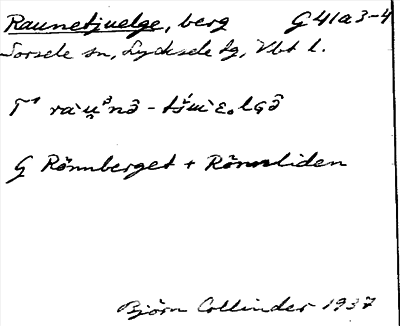 Raunetjuelge, berg G 41a3-4
Sorsele sn, Lycksele tg, Vbt l.
G Rönnberget + Rönnliden
Björn Collinder 1937